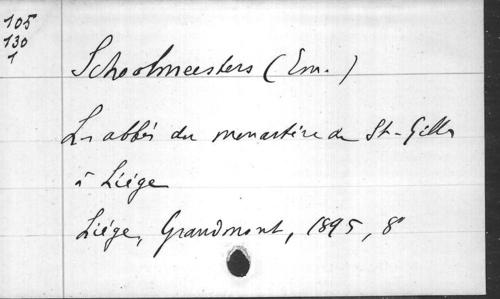 105
130
1
Schoolmeesters (Em.)
Les abbés du monastère de St-Gilles
à Liége
Liége, Grandmont, 1895, 8°